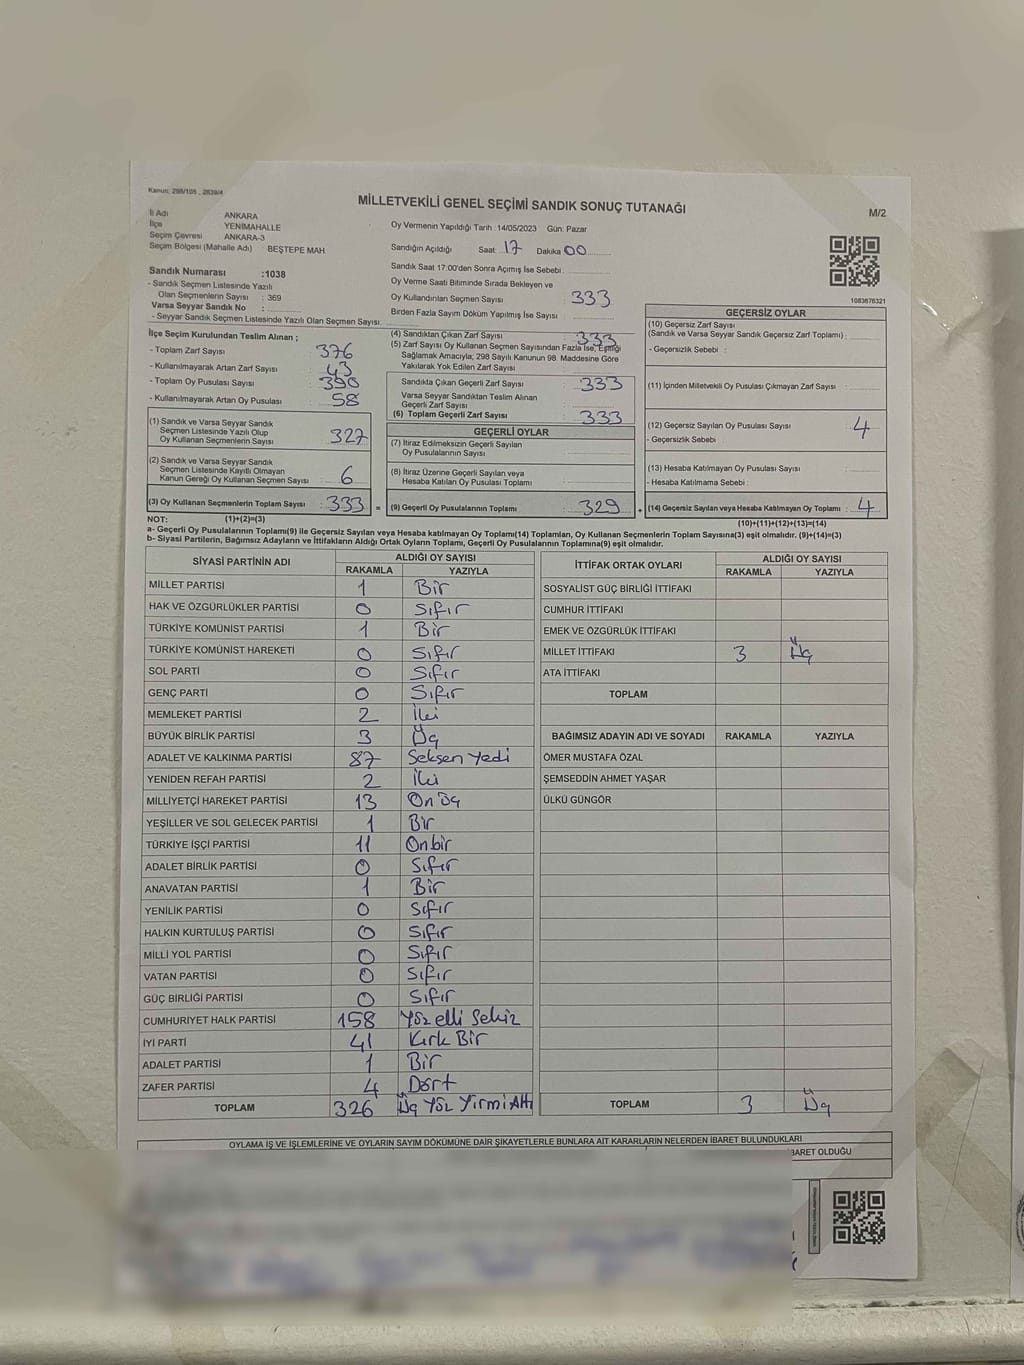 Kanun: 298/105 , 2839/4
MİLLETVEKİLİ GENEL SEÇİMİ SANDIK SONUÇ TUTANAĞI
M/2
İl Adı ANKARA
İlçe YENİMAHALLE
Seçim Çevresi ANKARA-3
Seçim Bölgesi (Mahalle Adı) BEŞTEPE MAH
Oy Vermenin Yapıldığı Tarih : 14/05/2023 Gün: Pazar
Sandığın Açıldığı Saat: 17 Dakika 00
Sandık Saat 17:00'den Sonra Açımış İse Sebebi :
Oy Verme Saati Bitiminde Sırada Bekleyen ve
Oy Kullandırılan Seçmen Sayısı 333
Birden Fazla Sayım Döküm Yapılmış İse Sayısı :
1083676321
Sandık Numarası :1038
- Sandık Seçmen Listesinde Yazılı
Olan Seçmenlerin Sayısı : 369
Varsa Seyyar Sandık No :
- Seyyar Sandık Seçmen Listesinde Yazılı Olan Seçmen Sayısı:
İlçe Seçim Kurulundan Teslim Alınan ;
- Toplam Zarf Sayısı : 376
- Kullanılmayarak Artan Zarf Sayısı : 43
- Toplam Oy Pusulası Sayısı : 390
- Kullanılmayarak Artan Oy Pusulası : 58
(1) Sandık ve Varsa Seyyar Sandık
Seçmen Listesinde Yazılı Olup
Oy Kullanan Seçmenlerin Sayısı : 327
(2) Sandık ve Varsa Seyyar Sandık
Seçmen Listesinde Kayıtlı Olmayan
Kanun Gereği Oy Kullanan Seçmen Sayısı : 6
(3) Oy Kullanan Seçmenlerin Toplam Sayısı : 333 =
(4) Sandıktan Çıkan Zarf Sayısı : 333
(5) Zarf Sayısı Oy Kullanan Seçmen Sayısından Fazla İse, Eşitliği
Sağlamak Amacıyla, 298 Sayılı Kanunun 98. Maddesine Göre
Yakılarak Yok Edilen Zarf Sayısı :
Sandıkta Çıkan Geçerli Zarf Sayısı : 333
Varsa Seyyar Sandıktan Teslim Alınan
Geçerli Zarf Sayısı :
(6) Toplam Geçerli Zarf Sayısı : 333
GEÇERLİ OYLAR
(7) İtiraz Edilmeksizin Geçerli Sayılan
Oy Pusulalarının Sayısı :
(8) İtiraz Üzerine Geçerli Sayılan veya
Hesaba Katılan Oy Pusulası Toplamı :
(9) Geçerli Oy Pusulalarının Toplamı : 329 +
GEÇERSİZ OYLAR
(10) Geçersiz Zarf Sayısı
(Sandık ve Varsa Seyyar Sandık Geçersiz Zarf Toplamı) :
- Geçersizlik Sebebi :
(11) İçinden Milletvekili Oy Pusulası Çıkmayan Zarf Sayısı :
(12) Geçersiz Sayılan Oy Pusulası Sayısı : 4
- Geçersizlik Sebebi :
(13) Hesaba Katılmayan Oy Pusulası Sayısı :
- Hesaba Katılmama Sebebi :
(14) Geçersiz Sayılan veya Hesaba Katılmayan Oy Toplamı : 4
NOT: (1)+(2)=(3) (10)+(11)+(12)+(13)=(14)
a- Geçerli Oy Pusulalarının Toplamı(9) ile Geçersiz Sayılan veya Hesaba katılmayan Oy Toplamı(14) Toplamları, Oy Kullanan Seçmenlerin Toplam Sayısına(3) eşit olmalıdır. (9)+(14)=(3)
b- Siyasi Partilerin, Bağımsız Adayların ve İttifakların Aldığı Ortak Oyların Toplamı, Geçerli Oy Pusulalarının Toplamına(9) eşit olmalıdır.
SİYASİ PARTİNİN ADI ALDIĞI OY SAYISI
RAKAMLA YAZIYLA
MİLLET PARTİSİ 1 Bir
HAK VE ÖZGÜRLÜKLER PARTİSİ 0 Sıfır
TÜRKİYE KOMÜNİST PARTİSİ 1 Bir
TÜRKİYE KOMÜNİST HAREKETİ 0 Sıfır
SOL PARTİ 0 Sıfır
GENÇ PARTİ 0 Sıfır
MEMLEKET PARTİSİ 2 İki
BÜYÜK BİRLİK PARTİSİ 3 Üç
ADALET VE KALKINMA PARTİSİ 87 Seksen Yedi
YENİDEN REFAH PARTİSİ 2 İki
MİLLİYETÇİ HAREKET PARTİSİ 13 On Üç
YEŞİLLER VE SOL GELECEK PARTİSİ 1 Bir
TÜRKİYE İŞÇİ PARTİSİ 11 Onbir
ADALET BİRLİK PARTİSİ 0 Sıfır
ANAVATAN PARTİSİ 1 Bir
YENİLİK PARTİSİ 0 Sıfır
HALKIN KURTULUŞ PARTİSİ 0 Sıfır
MİLLİ YOL PARTİSİ 0 Sıfır
VATAN PARTİSİ 0 Sıfır
GÜÇ BİRLİĞİ PARTİSİ 0 Sıfır
CUMHURİYET HALK PARTİSİ 158 Yüz elli Sekiz
İYİ PARTİ 41 Kırk Bir
ADALET PARTİSİ 1 Bir
ZAFER PARTİSİ 4 Dört
TOPLAM 326 Üç Yüz Yirmi Altı
İTTİFAK ORTAK OYLARI ALDIĞI OY SAYISI
RAKAMLA YAZIYLA
SOSYALİST GÜÇ BİRLİĞİ İTTİFAKI
CUMHUR İTTİFAKI
EMEK VE ÖZGÜRLÜK İTTİFAKI
MİLLET İTTİFAKI 3 Üç
ATA İTTİFAKI
TOPLAM
BAĞIMSIZ ADAYIN ADI VE SOYADI RAKAMLA YAZIYLA
ÖMER MUSTAFA ÖZAL
ŞEMSEDDİN AHMET YAŞAR
ÜLKÜ GÜNGÖR
TOPLAM 3 Üç
OYLAMA İŞ VE İŞLEMLERİNE VE OYLARIN SAYIM DÖKÜMÜNE DAİR ŞİKAYETLERLE BUNLARA AİT KARARLARIN NELERDEN İBARET BULUNDUKLARI
BARET OLDUĞU